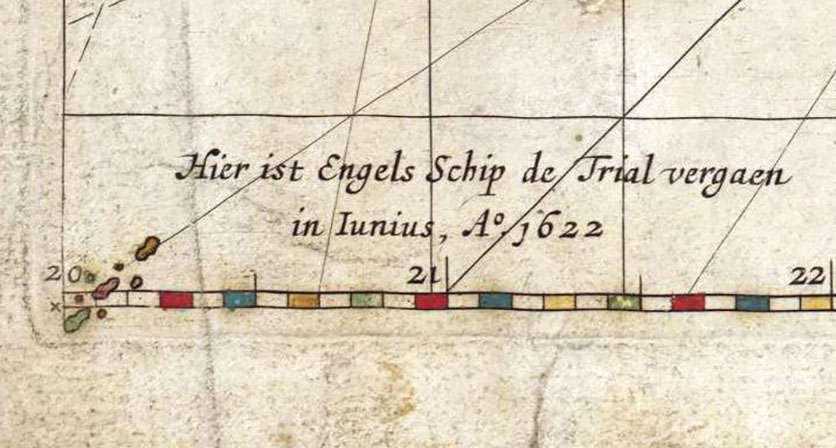 Hier ist Engels Schip de Trial vergaen
in Iunius, Aº. 1622
20
21
22